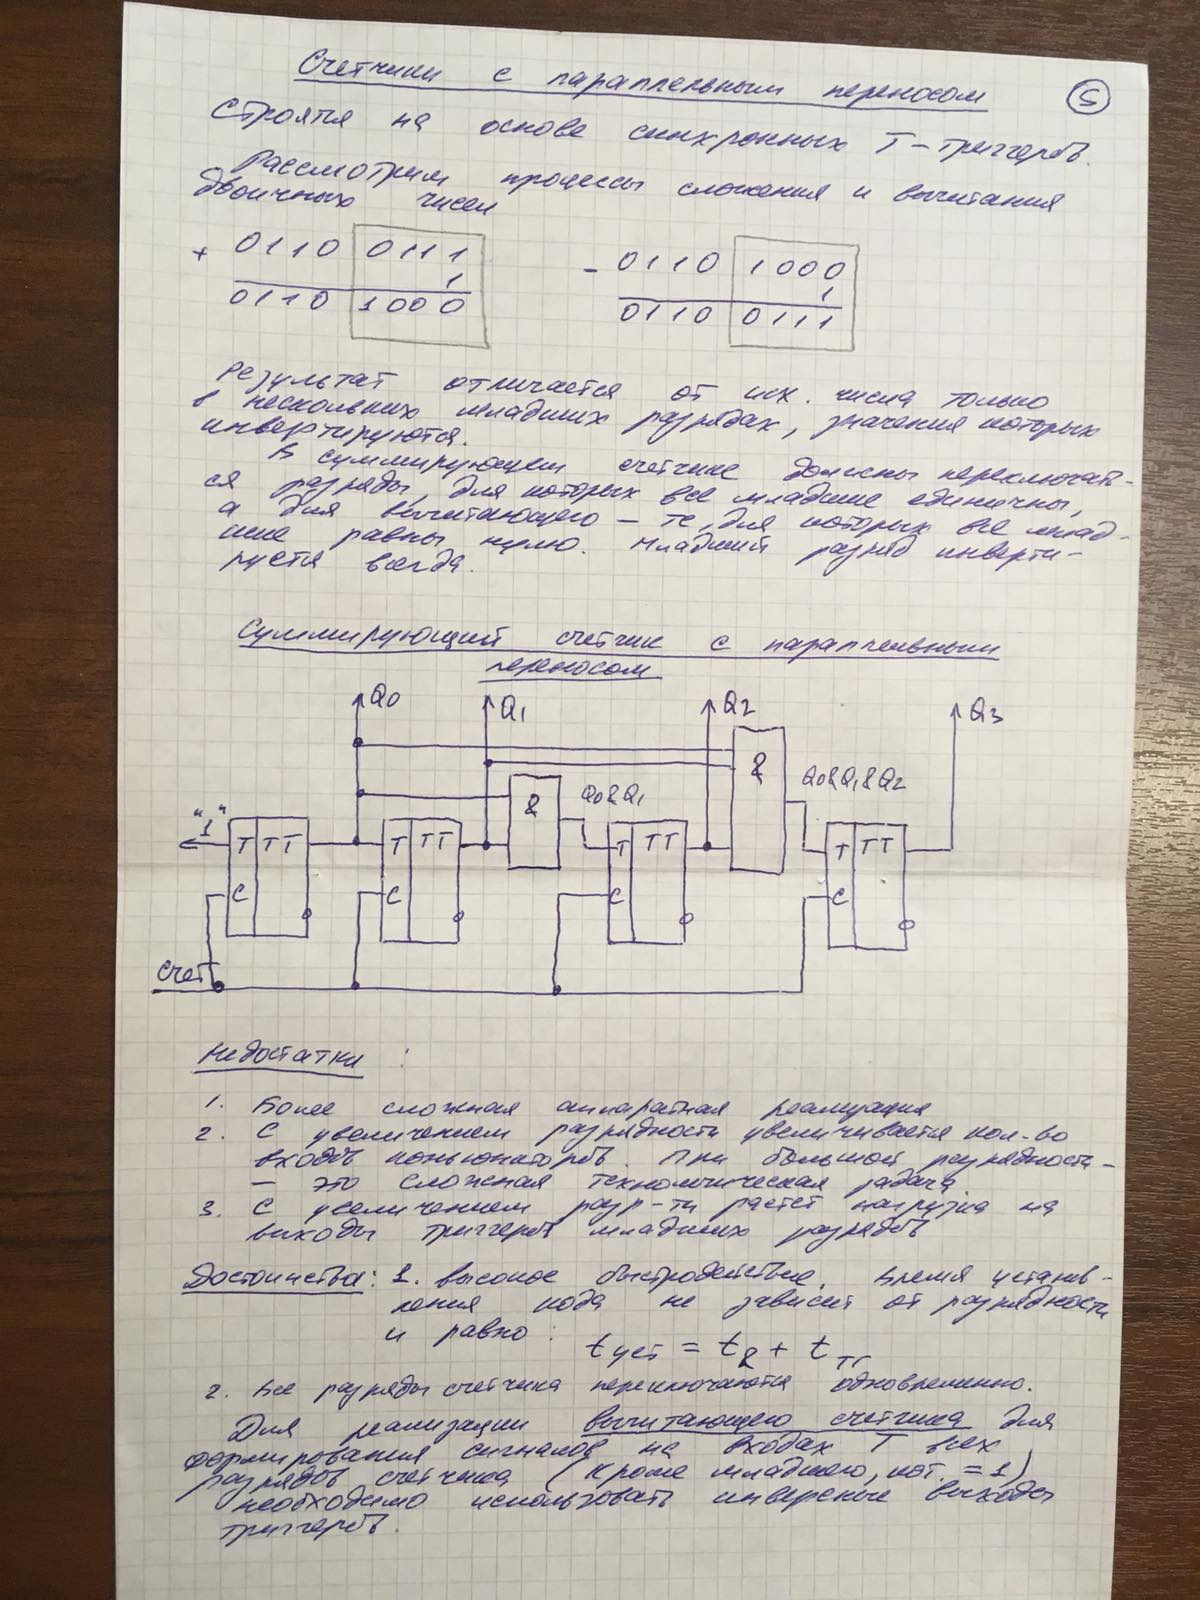 Счетчики с параллельным переносом
5
Строятся на основе синхронных Т-триггеров.
Рассмотрим процессы сложения и вычитания
двоичных чисел
+ 0110 0111
1
0110 1000
- 0110 1000
1
0110 0111
Результат отличается от исх. числа только
в нескольких младших разрядах, значения которых
инвертируются.
В суммирующем счетчике должны переключать-
ся разряды, для которых все младшие единичны,
а для вычитающего – те, для которых все млад-
шие равны нулю. Младший разряд инверти-
руется всегда.
Суммирующий счетчик с параллельным
переносом
Q0 Q1 Q2 Q3
& Q0&Q1 & Q0&Q1&Q2
"1" T TT T TT T TT T TT
C C C C
Счет
Недостатки :
1. Более сложная аппаратная реализация
2. С увеличением разрядности увеличивается кол-во
входов конъюнкторов. При большой разрядности –
– это сложная технологическая задача
3. С увеличением разр-ти растет нагрузка на
выходы триггеров младших разрядов
Достоинства: 1. Высокое быстродействие. Время установ-
ления кода не зависит от разрядности
и равно :
tуст = t& + tТГ
2. Все разряды счетчика переключаются одновременно.
Для реализации вычитающего счетчика для
формирования сигналов на входах Т всех
разрядов счетчика (кроме младшего, кот. = 1)
необходимо использовать инверсные выходы
триггеров.